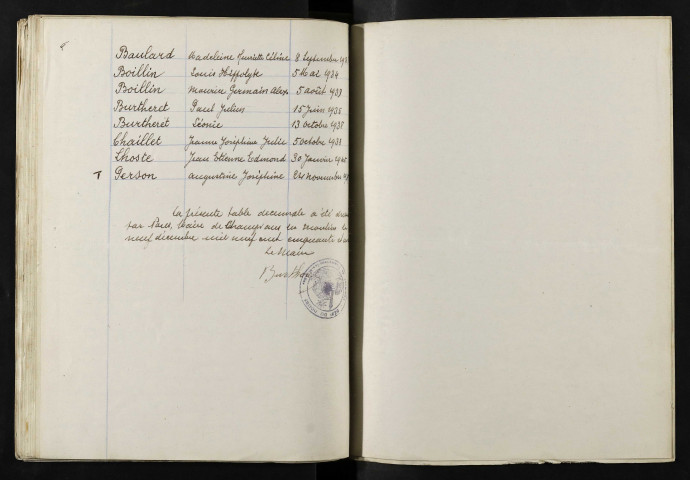 Baulard Madeleine Henriette Céline 8 Septembre 193
Boillin Louis Hippolyte 5 Mai 1934
Boillin Maurice Germain Alex 5 août 1939
Burtheret Paul Julien 15 Juin 1935
Burtheret Léonie 13 octobre 1938
Chaillet Jeanne Joséphine Julie 5 octobre 1938
Lhoste Jean Etienne Edmond 30 Janvier 19
T Person Augustine Joséphine 24 novembre
La présente table décennale a été
par Nous, Maire de Champvans les Moulins le
neuf décembre mil neuf cent cinquante
Le Maire